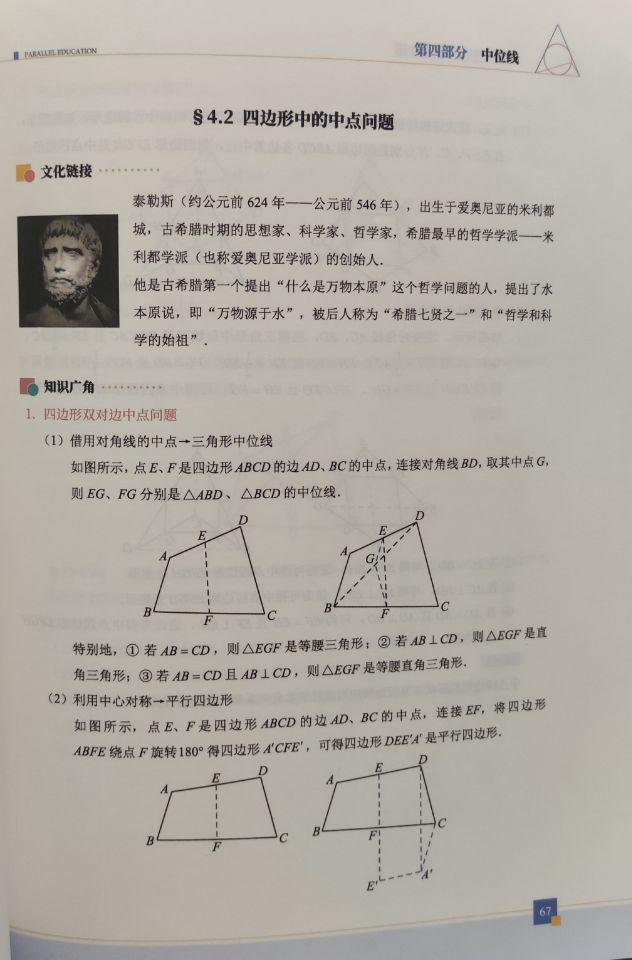 PARALLEL EDUCATION
第四部分 中位线
§4.2 四边形中的中点问题
文化链接
泰勒斯（约公元前 624 年——公元前 546 年），出生于爱奥尼亚的米利都
城，古希腊时期的思想家、科学家、哲学家，希腊最早的哲学学派——米
利都学派（也称爱奥尼亚学派）的创始人．
他是古希腊第一个提出“什么是万物本原”这个哲学问题的人，提出了水
本原说，即“万物源于水”，被后人称为“希腊七贤之一”和“哲学和科
学的始祖”．
知识广角
1. 四边形双对边中点问题
（1）借用对角线的中点→三角形中位线
如图所示，点 E、F 是四边形 ABCD 的边 AD、BC 的中点，连接对角线 BD，取其中点 G，
则 EG、FG 分别是△ABD、△BCD 的中位线．
A E D B F C
A E D G B F C
特别地，① 若 AB = CD，则△EGF 是等腰三角形；② 若 AB ⊥ CD，则△EGF 是直
角三角形；③ 若 AB = CD 且 AB ⊥ CD，则△EGF 是等腰直角三角形．
（2）利用中心对称→平行四边形
如图所示，点 E、F 是四边形 ABCD 的边 AD、BC 的中点，连接 EF，将四边形
ABFE 绕点 F 旋转180° 得四边形 A′CFE′，可得四边形 DEE′A′ 是平行四边形．
A E D B F C
A E D B F C E′ A′
67